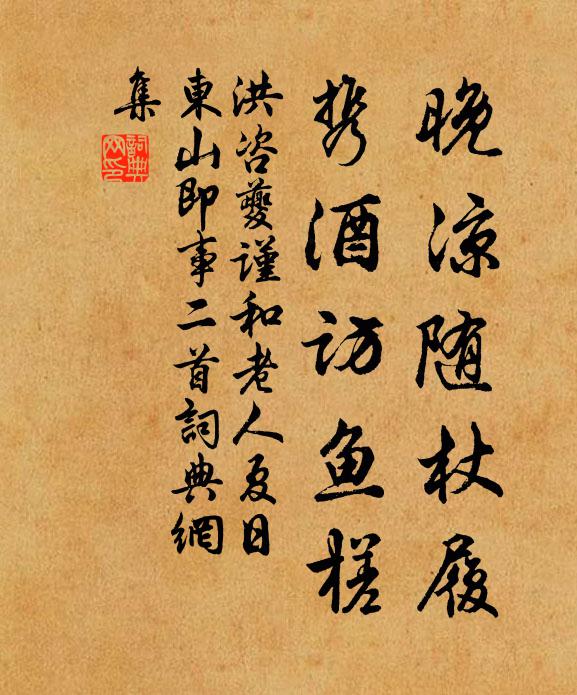 晚凉随杖履
携酒访鱼槎
洪咨夔謹和老人夏日
東山即事二首詞典網
集
詞典
网印